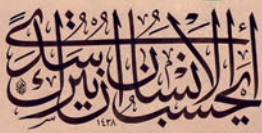 أيحسب الإنسان أن يترك سدى
١٤٣٨